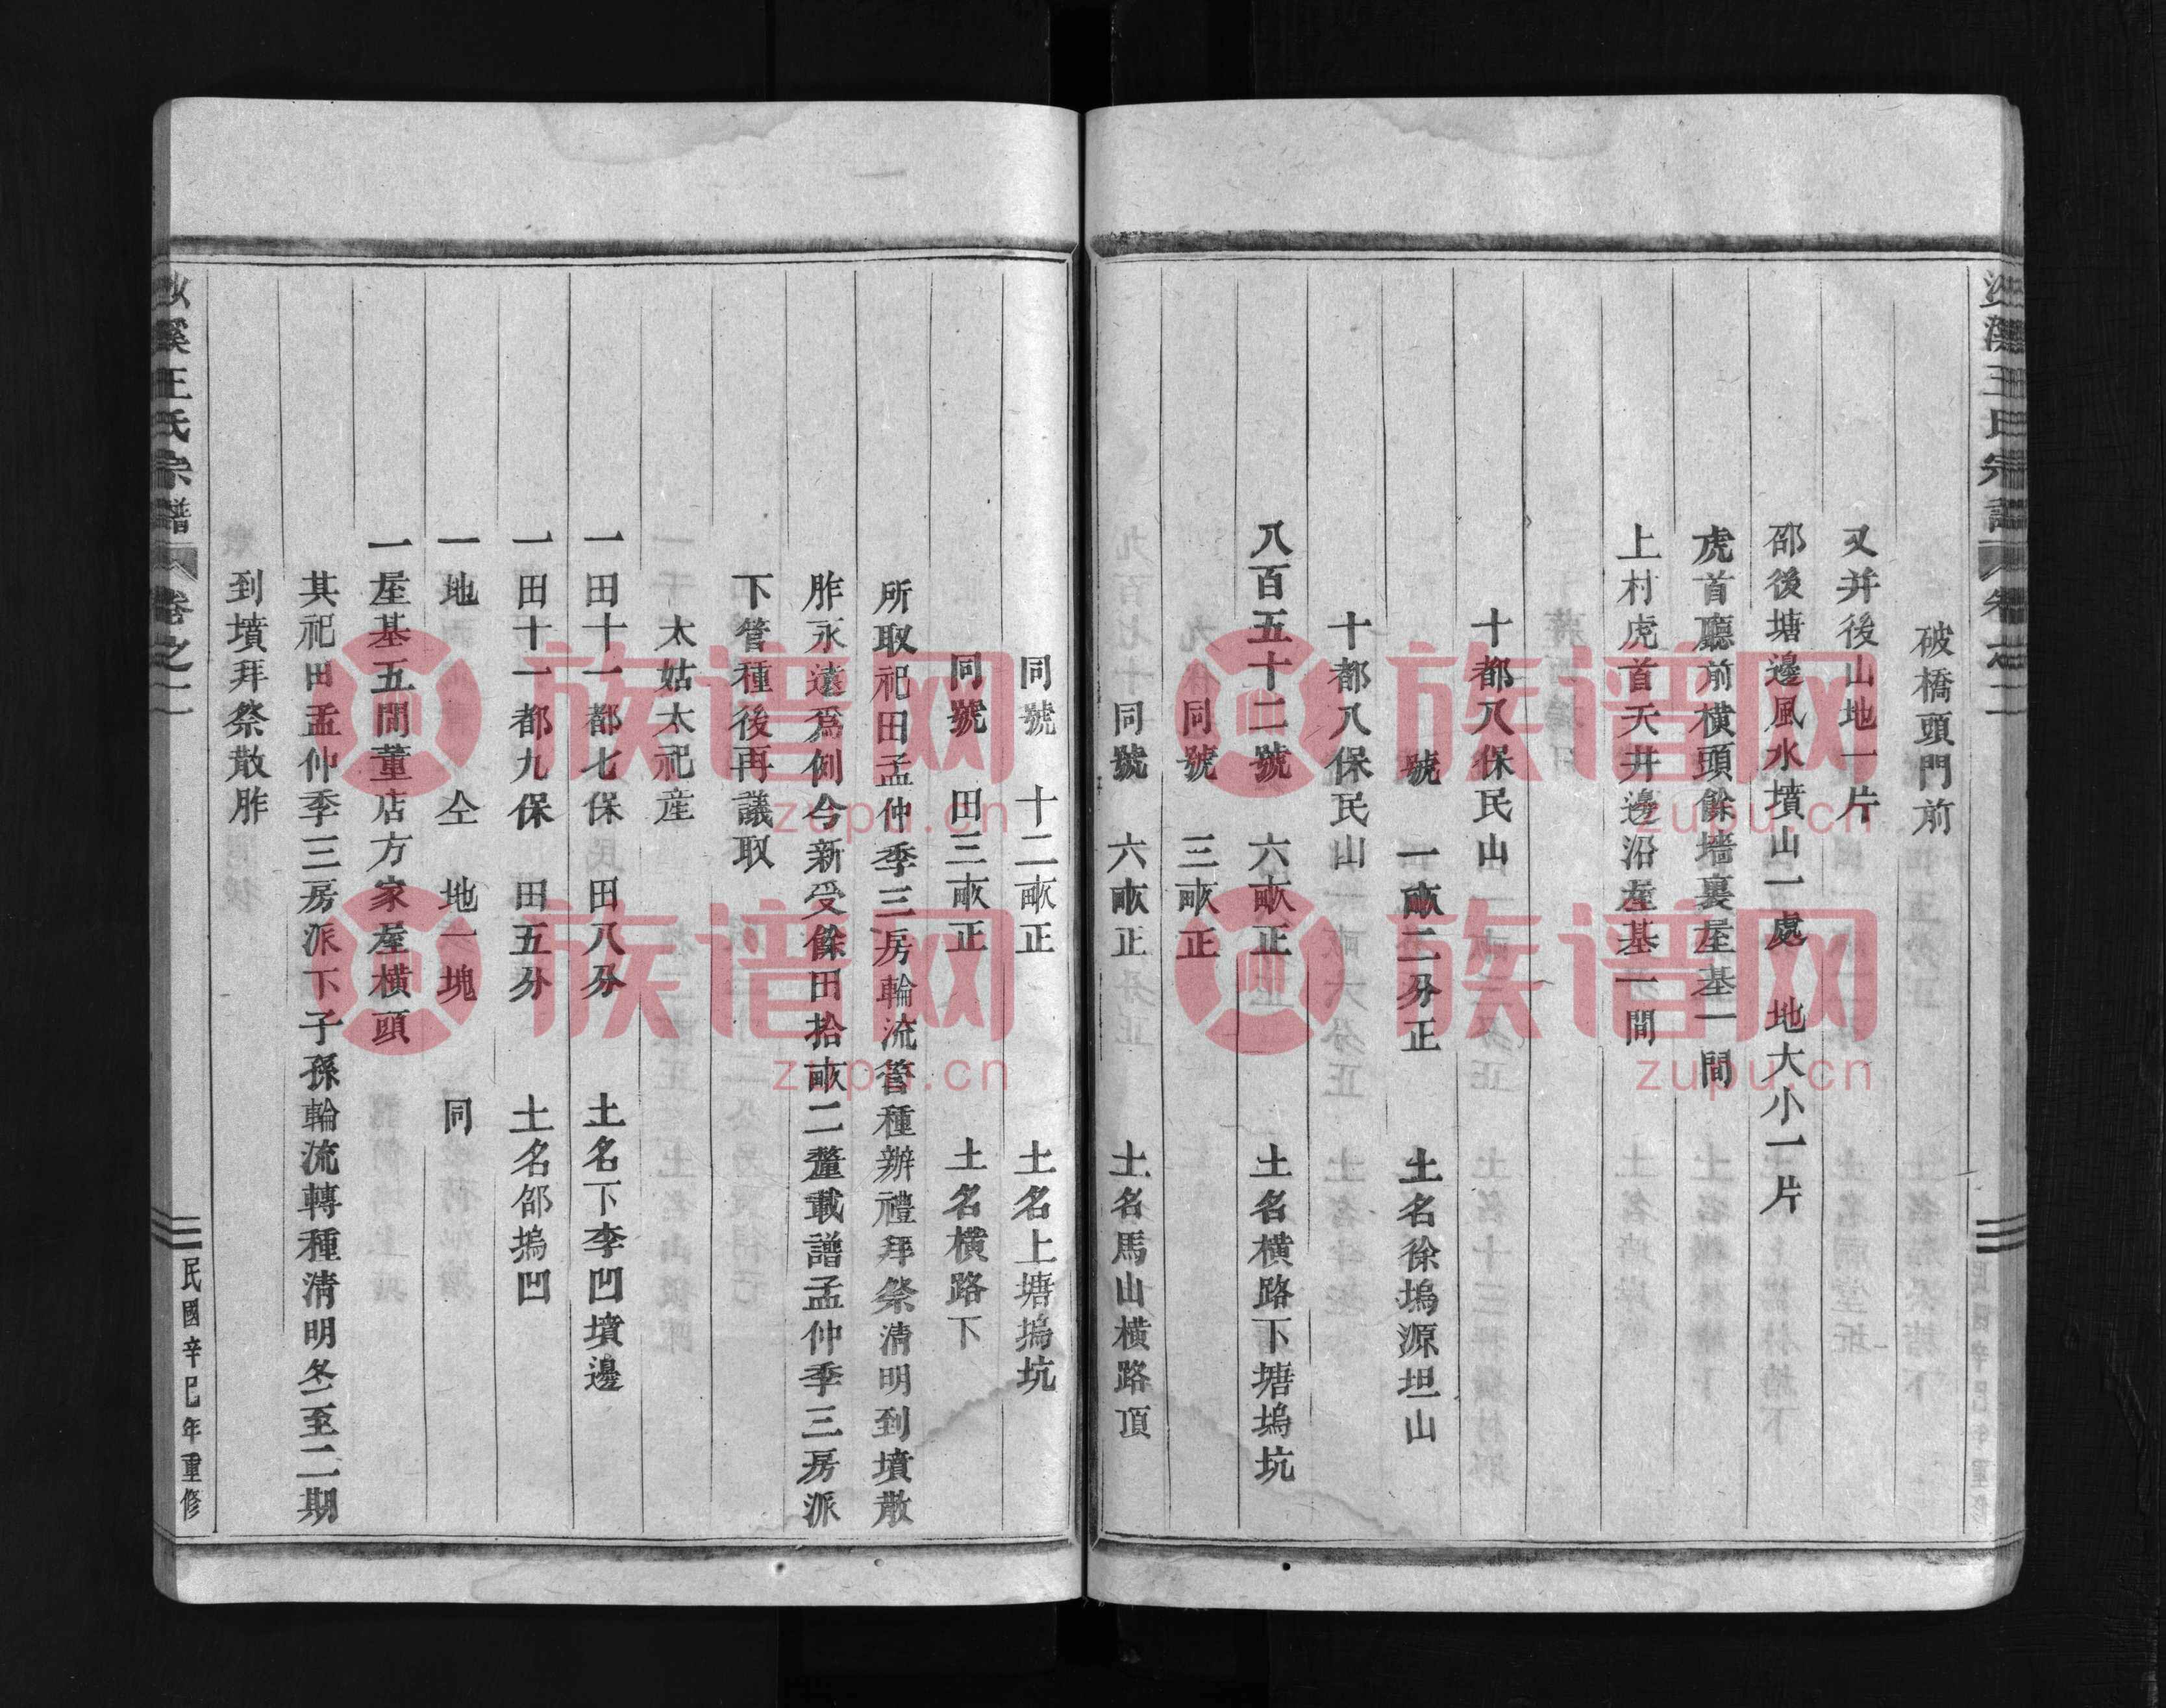 沙溪王氏宗譜 卷之一
破橋頭門前
又并後山地一片
邵後塘邊風水墳山一處 地大小一片
虎首廳前橫頭餘墻裏屋基一間
上村虎首天井邊沿屋基一間
十都八保民山
號 一畝二分正 土名徐塢源坦山
十都八保民山
八百五十二號 六畝正 土名橫路下塘塢坑
同號 三畝正
同號 六畝正 土名馬山橫路頂
同號 十二畝正 土名上塘塢坑
同號 田三畝正 土名橫路下
所取祀田孟仲季三房輪流管種辦禮拜祭清明到墳散
胙永遠爲例今新受餘田拾畝二釐載譜孟仲季三房派
下管種後再議取
太姑太祀産
一田十一都七保 田八分 土名下李凹墳邊
一田十一都九保 田五分 土名邰塢凹
一地 仝 地一塊 同
一屋基五間董店方家屋橫頭
其祀田孟仲季三房派下子孫輪流轉種清明冬至二期
到墳拜祭散胙
沙溪王氏宗譜 卷之一
民國辛巳年重修
族谱网
zupu.cn
族谱网
zupu.cn
族谱网
zupu.cn
族谱网
zupu.cn